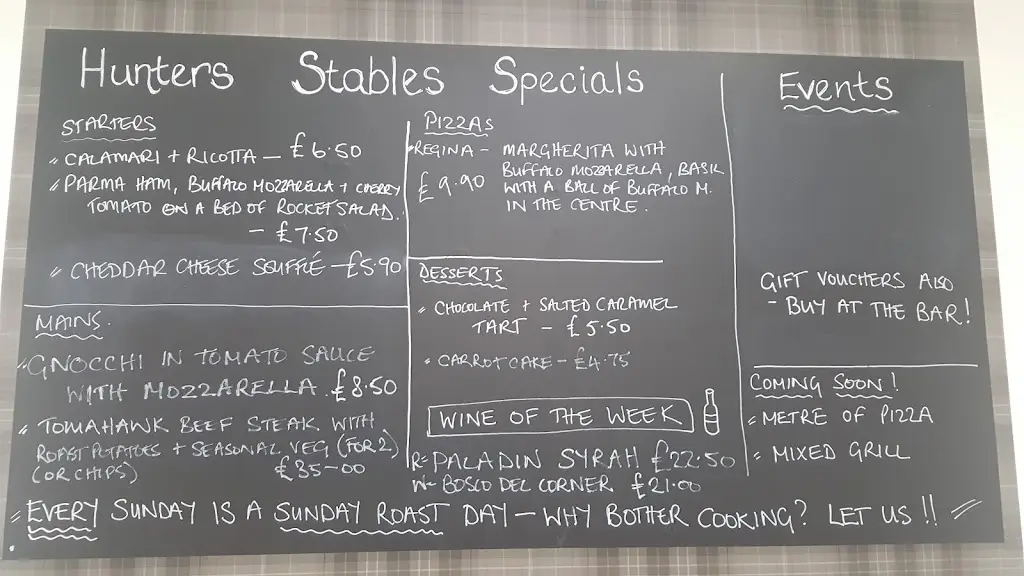 Hunters Stables Specials
STARTERS
CALAMARI + RICOTTA - £6.50
PARMA HAM, BUFFALO MOZZARELLA + CHERRY
TOMATO ON A BED OF ROCKET SALAD.
- £7.50
CHEDDAR CHEESE SOUFFLÉ - £5.90
MAINS.
GNOCCHI IN TOMATO SAUCE
WITH MOZZARELLA £8.50
TOMAHAWK BEEF STEAK WITH
ROAST POTATOES + SEASONAL VEG (FOR 2)
(OR CHIPS) £35-00
PIZZAS
REGINA - MARGHERITA WITH
£9.90 BUFFALO MOZZARELLA, BASIL
WITH A BALL OF BUFFALO M.
IN THE CENTRE.
DESSERTS
CHOCOLATE + SALTED CARAMEL
TART - £5.50
CARROT CAKE - £4.75
WINE OF THE WEEK
R- PALADIN SYRAH £22.50
W- BOSCO DEL CORNER £21.00
Events
GIFT VOUCHERS ALSO
- BUY AT THE BAR!
COMING SOON!
METRE OF PIZZA
MIXED GRILL
EVERY SUNDAY IS A SUNDAY ROAST DAY - WHY BOTHER COOKING? LET US!!